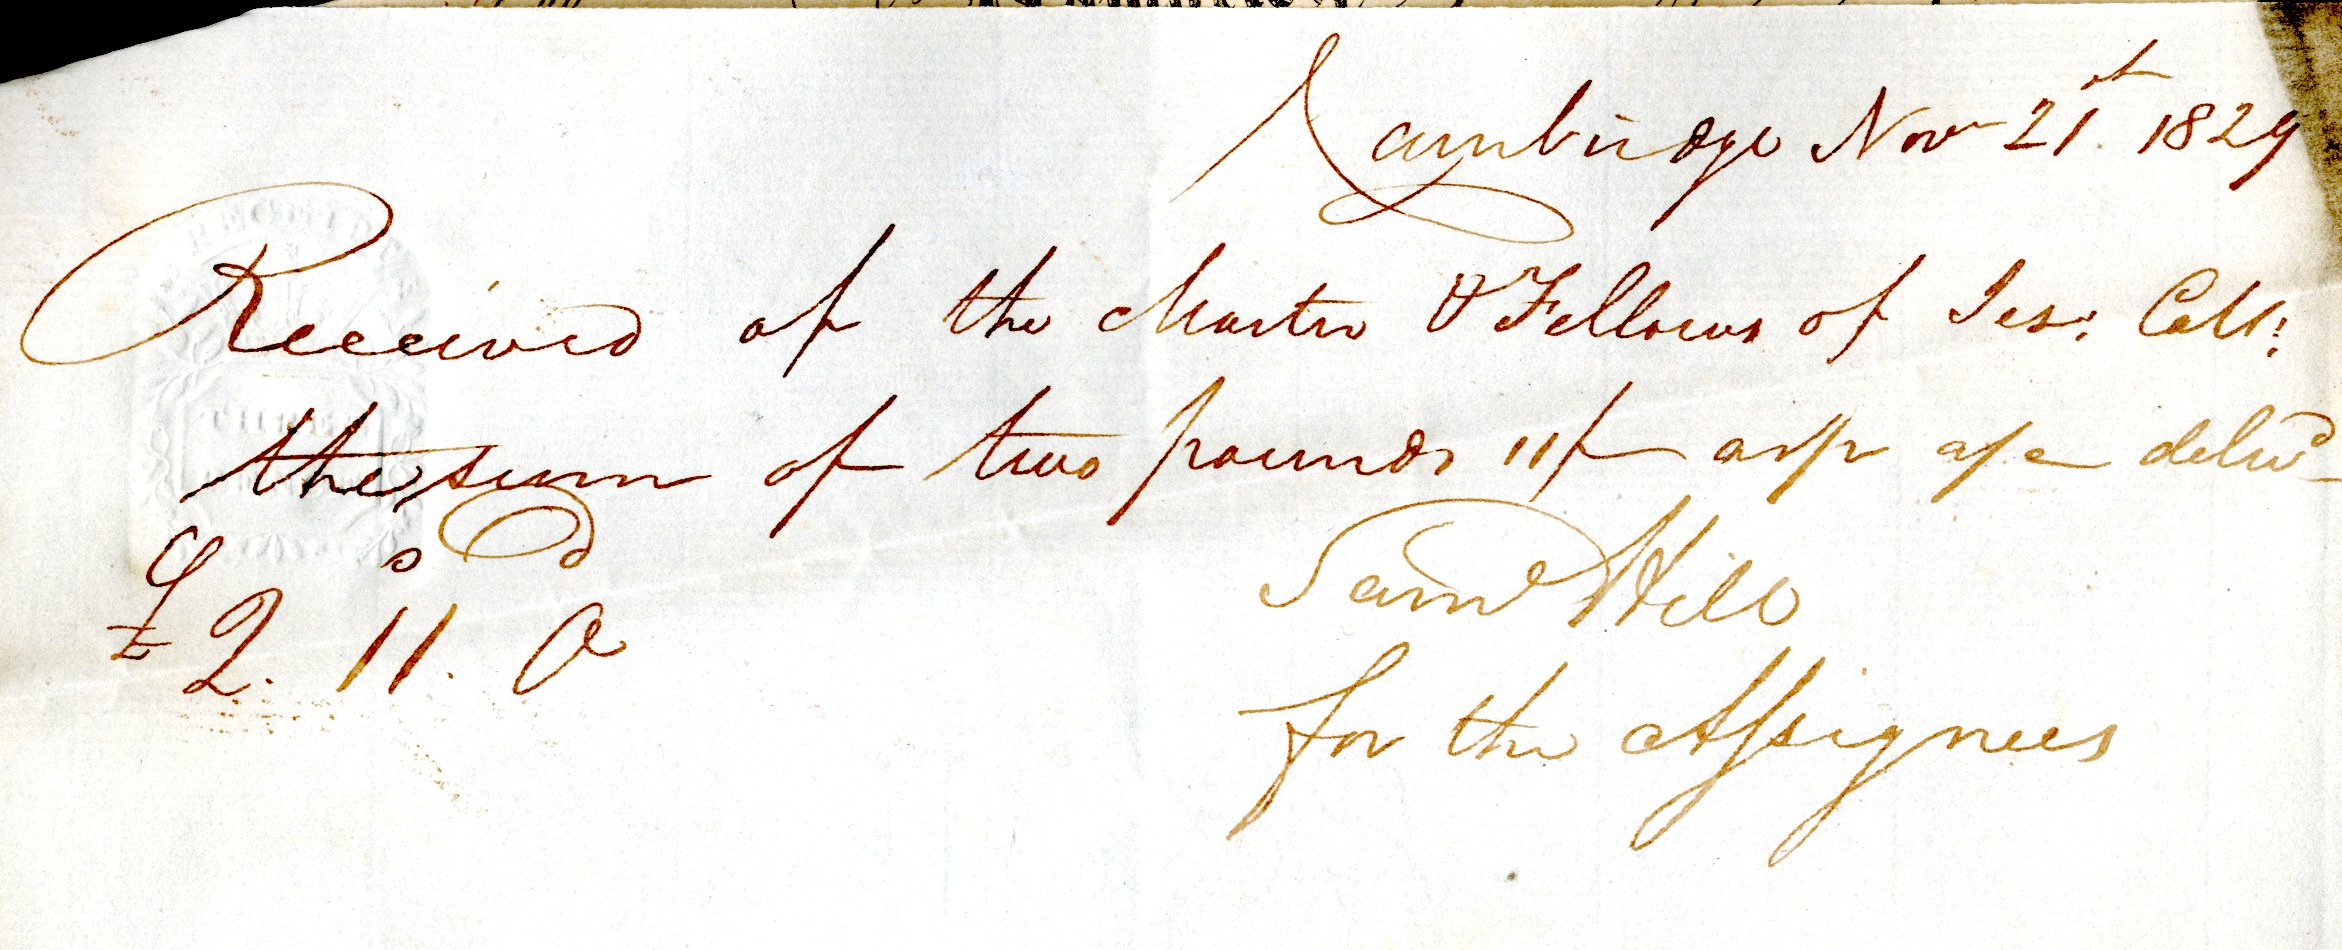 Cambridge Nov 21st 1829
Received of the Master & Fellows of Jes: Coll:
the sum of two pounds 11/- as pr a/c deliv'd
£ s d
2. 11. 0
Saml Hill
for the Assignees